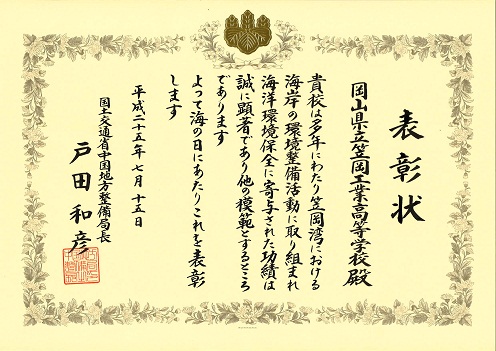 表彰状
岡山県立笠岡工業高等学校殿
貴校は多年にわたり笠岡湾における
海岸の環境整備活動に取り組まれ
海洋環境保全に寄与された功績は
誠に顕著であり他の模範とするところ
であります
よって海の日にあたりこれを表彰
します
平成二十五年七月十五日
国土交通省中国地方整備局長
戸田和彦